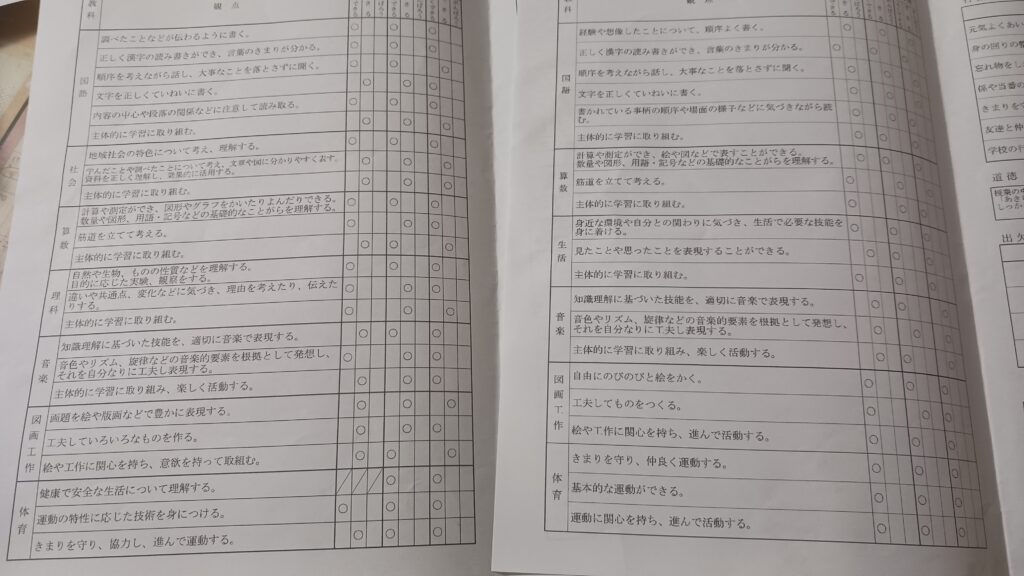 教科
観点
国語
調べたことなどが伝わるように書く。
正しく漢字の読み書きができ、言葉のきまりが分かる。
順序を考えながら話し、大事なことを落とさずに聞く。
文字を正しくていねいに書く。
内容の中心や段落の関係などに注意して読み取る。
主体的に学習に取り組む。
社会
地域社会の特色について考え、理解する。
学んだことや調べたことについて考え、文章や図に分かりやすく表す。
資料を正しく理解し、効果的に活用する。
主体的に学習に取り組む。
算数
計算や測定ができ、図形やグラフをかいたりよんだりできる。
数量や図形、用語・記号などの基礎的なことがらを理解する。
筋道を立てて考える。
主体的に学習に取り組む。
理科
自然や生物、ものの性質などを理解する。
目的に応じた実験、観察をする。
違いや共通点、変化などに気づき、理由を考えたり、伝えた
りする。
主体的に学習に取り組む。
音楽
知識理解に基づいた技能を、適切に音楽で表現する。
音色やリズム、旋律などの音楽的要素を根拠として発想し、
それを自分なりに工夫し表現する。
主体的に学習に取り組み、楽しく活動する。
図画工作
画題を絵や版画などで豊かに表現する。
工夫していろいろなものを作る。
絵や工作に関心を持ち、意欲を持って取組む。
体育
健康で安全な生活について理解する。
運動の特性に応じた技術を身につける。
きまりを守り、協力し、進んで運動する。
科
観点
国語
経験や想像したことについて、順序よく書く。
正しく漢字の読み書きができ、言葉のきまりが分かる。
順序を考えながら話し、大事なことを落とさずに聞く。
文字を正しくていねいに書く。
書かれている事柄の順序や場面の様子などに気づきながら読
む。
主体的に学習に取り組む。
算数
計算や測定ができ、絵や図などで表すことができる。
数量や図形、用語・記号などの基礎的なことがらを理解する。
筋道を立てて考える。
主体的に学習に取り組む。
生活
身近な環境や自分との関わりに気づき、生活で必要な技能を
身に着ける。
見たことや思ったことを表現することができる。
主体的に学習に取り組む。
音楽
知識理解に基づいた技能を、適切に音楽で表現する。
音色やリズム、旋律などの音楽的要素を根拠として発想し、
それを自分なりに工夫し表現する。
主体的に学習に取り組み、楽しく活動する。
図画工作
自由にのびのびと絵をかく。
工夫してものをつくる。
絵や工作に関心を持ち、進んで活動する。
体育
きまりを守り、仲良く運動する。
基本的な運動ができる。
運動に関心を持ち、進んで活動する。
元気よくあい
身の回りの
忘れ物をし
係や当番の
きまりを
友達と仲
学校の
道徳
授業の
しっか
出欠